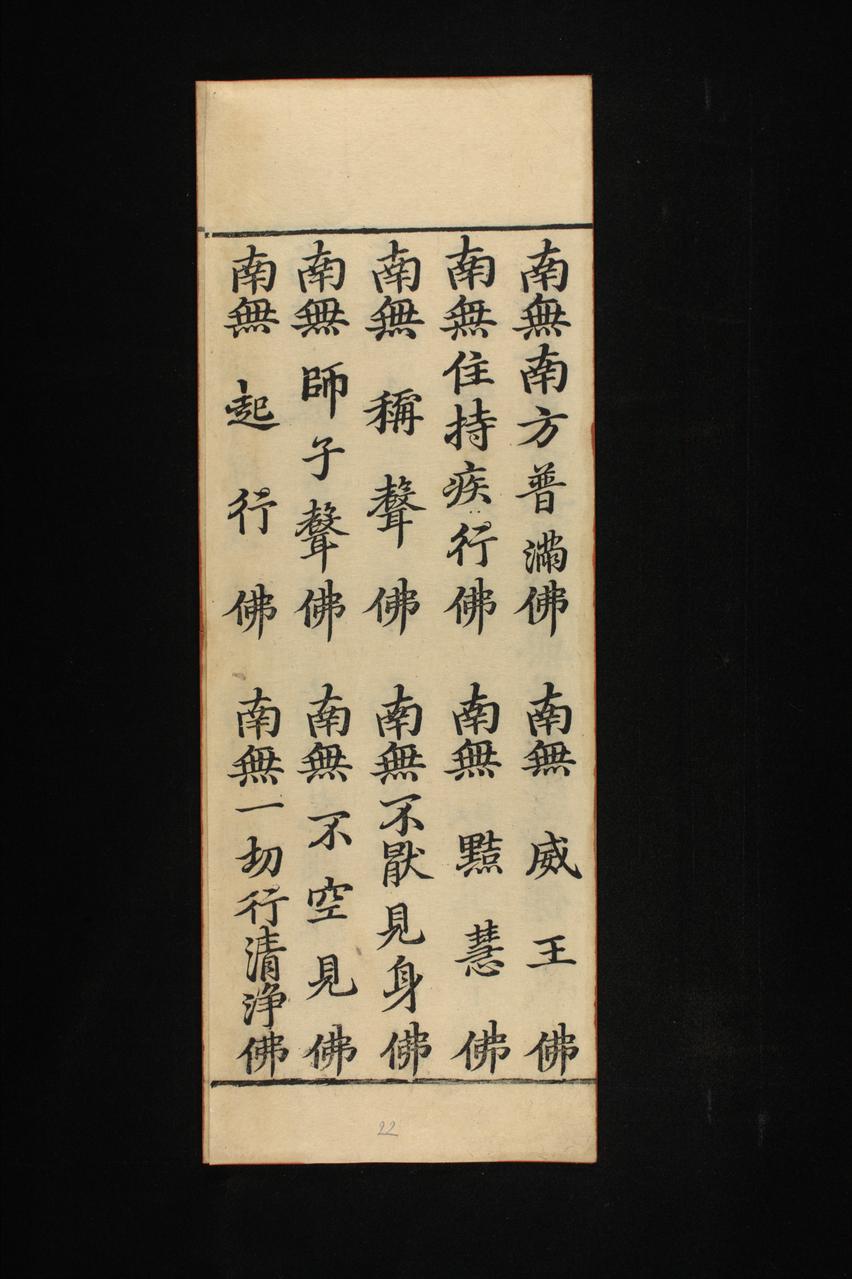 南無南方普滿佛　南無威王佛
南無住持疾行佛　南無黠慧佛
南無稱聲佛　南無不猒見身佛
南無師子聲佛　南無不空見佛
南無起行佛　南無一切行清淨佛
22